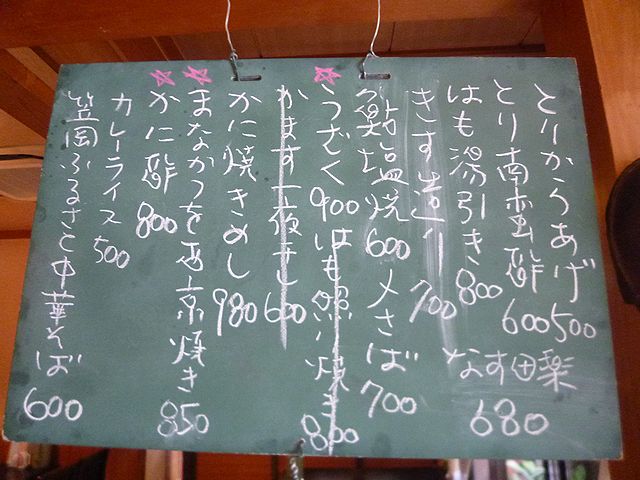 とりからあげ 500
とり南蛮酢 600
はも湯引き 800
なす田楽 680
きす造り 700
鮎塩焼 600
〆さば 700
☆うざく 900
はも照り焼き 800
かます一夜干し 600
かに焼きめし 980
☆まなかつを西京焼き 850
☆かに酢 800
カレーライス 500
笠岡ふるさと中華そば 600